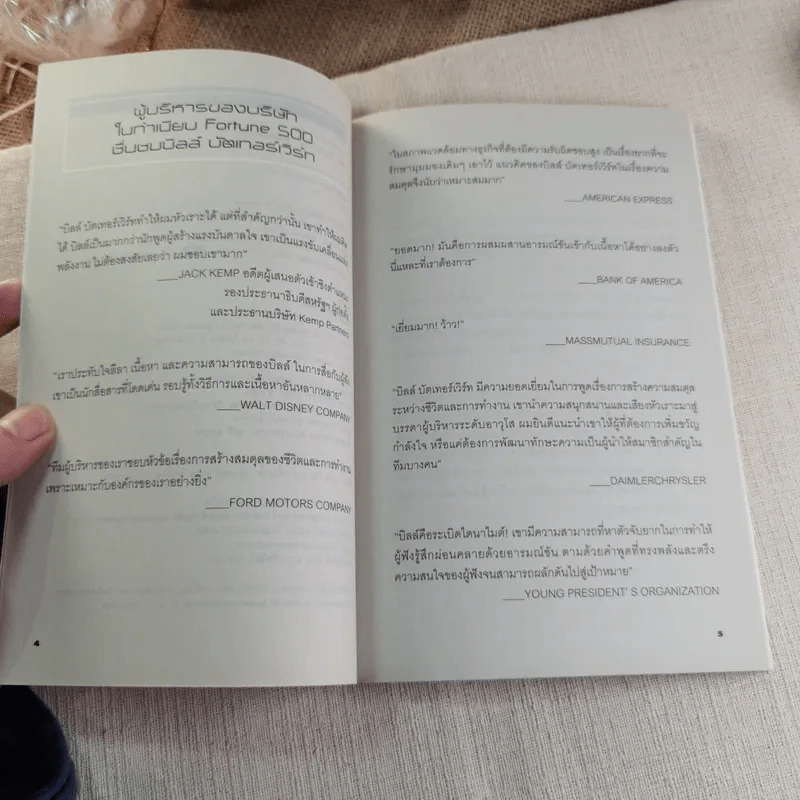 ผู้บริหารของบริษัท
ในทำเนียบ Fortune 500
ชื่นชมบิลล์ บัตเทอร์เวิร์ท
"บิลล์ บัตเทอร์เวิร์ททำให้ผมหัวเราะได้ แต่ที่สำคัญกว่านั้น เขาทำให้
ได้ บิลล์เป็นมากกว่านักพูดผู้สร้างแรงบันดาลใจ เขาเป็นแรงขับเคลื่อน
พลังงาน ไม่ต้องสงสัยเลยว่า ผมชอบเขามาก"
____JACK KEMP อดีตผู้เสนอตัวเข้าชิงตำแหน่ง
รองประธานาธิบดีสหรัฐฯ ผู้ก่อตั้ง
และประธานบริษัท Kemp Partners
"เราประทับใจลีลา เนื้อหา และความสามารถของบิลล์ ในการสื่อกับผู้ฟัง
เขาเป็นนักสื่อสารที่โดดเด่น รอบรู้ทั้งวิธีการและเนื้อหาอันหลากหลาย"
____WALT DISNEY COMPANY
"ทีมผู้บริหารของเราชอบหัวข้อเรื่องการสร้างสมดุลของชีวิตและการทำงาน
เพราะเหมาะกับองค์กรของเราอย่างยิ่ง"
____FORD MOTORS COMPANY
4
"ในสภาพแวดล้อมทางธุรกิจที่ต้องมีความรับผิดชอบสูง เป็นเรื่องยากที่จะ
รักษามุมมองเดิมๆ เอาไว้ แนวคิดของบิลล์ บัตเทอร์เวิร์ทในเรื่องความ
สมดุลจึงนับว่าเหมาะสมมาก"
____AMERICAN EXPRESS
"ยอดมาก! มันคือการผสมผสานอารมณ์ขันเข้ากับเนื้อหาได้อย่างลงตัว
นี่แหละที่เราต้องการ"
____BANK OF AMERICA
"เยี่ยมมาก! ว้าว!"
____MASSMUTUAL INSURANCE
"บิลล์ บัตเทอร์เวิร์ท มีความยอดเยี่ยมในการพูดเรื่องการสร้างความสมดุล
ระหว่างชีวิตและการทำงาน เขานำความสนุกสนานและเสียงหัวเราะมาสู่
บรรดาผู้บริหารระดับอาวุโส ผมยินดีแนะนำเขาให้ผู้ที่ต้องการเพิ่มขวัญ
กำลังใจ หรือแค่ต้องการพัฒนาทักษะความเป็นผู้นำให้สมาชิกสำคัญใน
ทีมบางคน"
____DAIMLERCHRYSLER
"บิลล์คือระเบิดไดนาไมต์! เขามีความสามารถที่หาตัวจับยากในการทำให้
ผู้ฟังรู้สึกผ่อนคลายด้วยอารมณ์ขัน ตามด้วยคำพูดที่ทรงพลังและตรึง
ความสนใจของผู้ฟังจนสามารถผลักดันไปสู่เป้าหมาย"
____YOUNG PRESIDENT' S ORGANIZATION
5